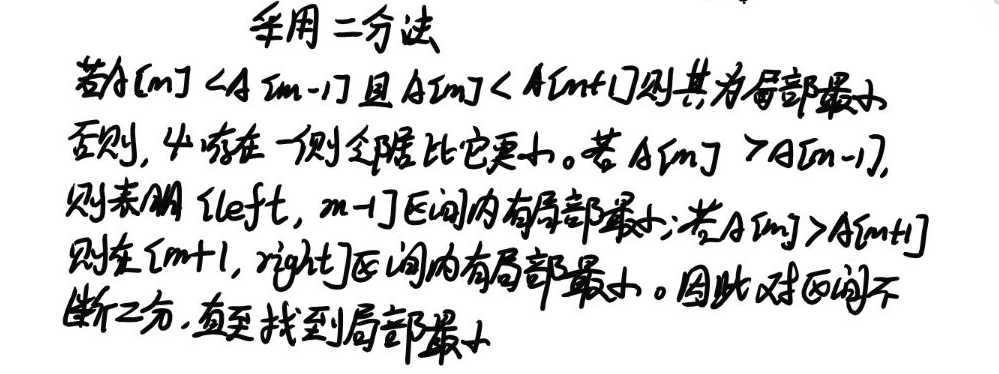 采用二分法
若A[m]<A[m-1]且A[m]<A[m+1]则其为局部最小
否则,必存在一侧邻居比它更小。若A[m]>A[m-1],
则表明[left,m-1]区间内有局部最小;若A[m]>A[m+1]
则在[m+1,right]区间内有局部最小。因此对区间不
断二分,直至找到局部最小